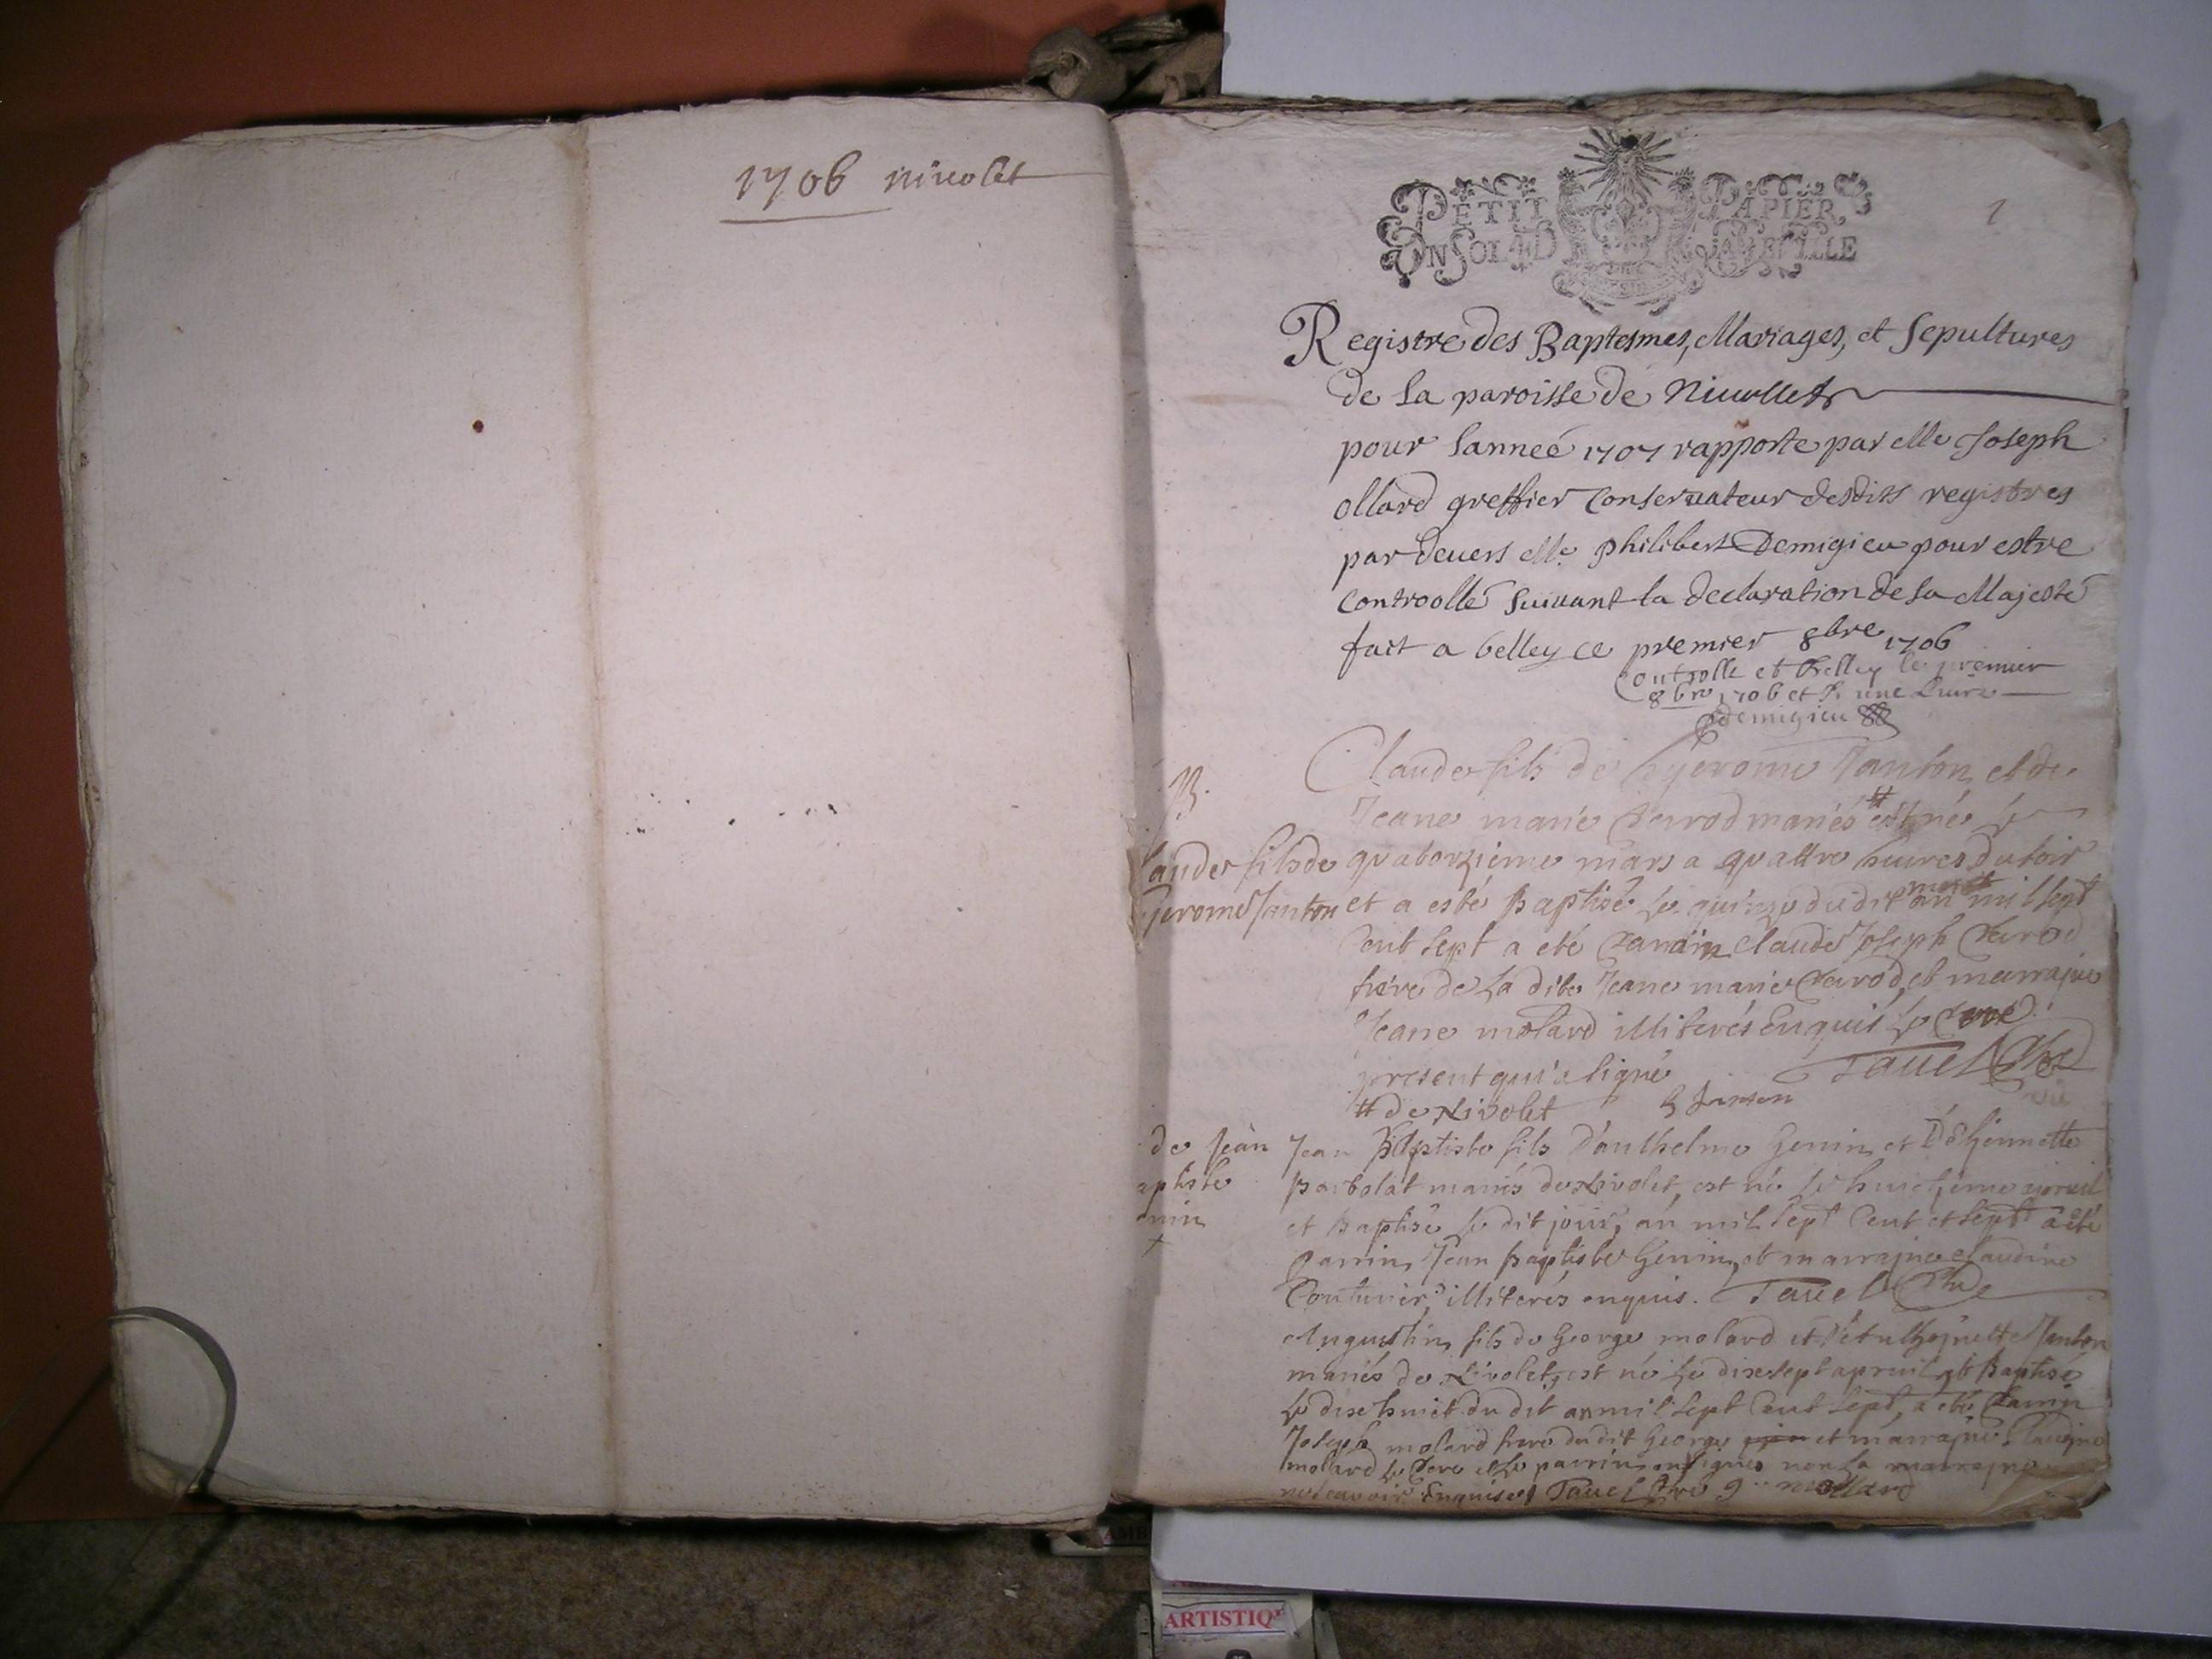 1706 nivolet
1
PETIT PAPIER
UN SOL 4 D LA FEUILLE
Registre des Baptesmes, Mariages, et Sepultures
de la paroisse de Nivollet
pour lanneé 1707 rapporte par Me Joseph
Ollard greffier Conservateur desdits registres
par devers Me philibert Demigieu pour estre
Controollé suivant la declaration de sa Majesté
fait a belley ce premier 8bre 1706
Controlle et belley le premier
8bre 1706 et R. une livre
Demigieu
B.
laude fils de
gerome Janton
Claude fils de gerome Janton, et de
Jeane marie Perrod mariés # est né le
quatorzieme mars a quattre heures du soir
et a esté baptisé le quinze dudit mars an mil sept
cent sept a eté Parrin Claude Joseph Perrod
frere de la dite Jeane marie Perrod, et marraine
Jeane molard illiterés Enquis le
present qui a signé Tavel Pbre
# de Nivolet B Janton
de Jean
aptiste
enin
Jean Baptiste fils d'anthelme Genin et
mariés de Nivolet, est né le huictieme apvril
et baptisé le dit jour, an mil sept cent et sept a eté
parrin Jean baptiste Genin, et marraine Claudine
Couturier, illiterés enquis. Tavel Pbre
Augustin fils de George molard et Janton
mariés de Nivolet, est né le dixsept apvril et baptisé
le dixhuict du dit an mil sept cent sept, a eté Parrin
Joseph molard frere du dit George et marraine
molard le Pere et le parrin ont signés non la marraine
ne scavoir Enquise Tavel Pbre g mollard
ARTISTIQ